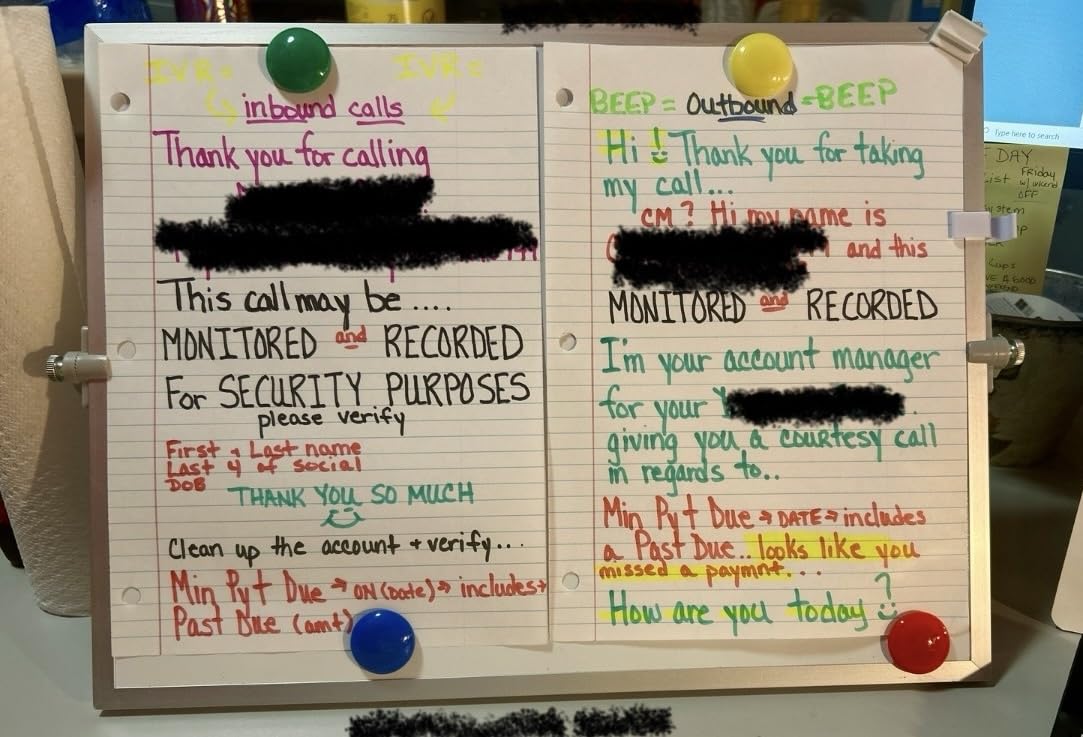 IVR = IVR =
inbound calls
Thank you for calling
This call may be ....
MONITORED and RECORDED
For SECURITY PURPOSES
please verify
First & Last name
Last 4 of social
DOB
THANK YOU SO MUCH
Clean up the account + verify...
Min Pyt Due → ON (Date) → includes +
Past Due (amt)
BEEP = Outbound = BEEP
Hi ! Thank you for taking
my call...
CM ? Hi my name is
and this
MONITORED and RECORDED
I'm your account manager
for your
giving you a courtesy call
in regards to..
Min Pyt Due → DATE → includes
a Past Due.. looks like you
missed a paymnt. . . .
How are you today ?
Type here to search
DAY
List Friday
w/ wkend
OFF